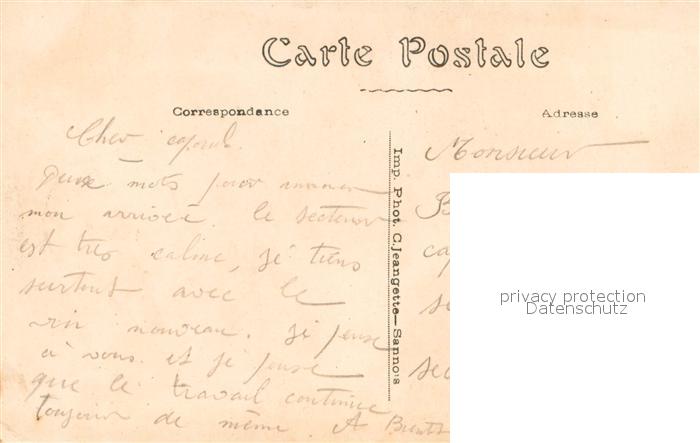 Carte Postale
Correspondance
Adresse
Cher caporal.
Deux mots pour annoncer
mon arrivée. le secteur
est tres calme, je tiens
surtout avec le
vin nouveau. Je pense
à vous. et je pense
que le travail continue
toujours de même. A
Monsieur
B
ca
se
sec
Imp. Phot. C. Jeangette—Sannois
privacy protection
Datenschutz